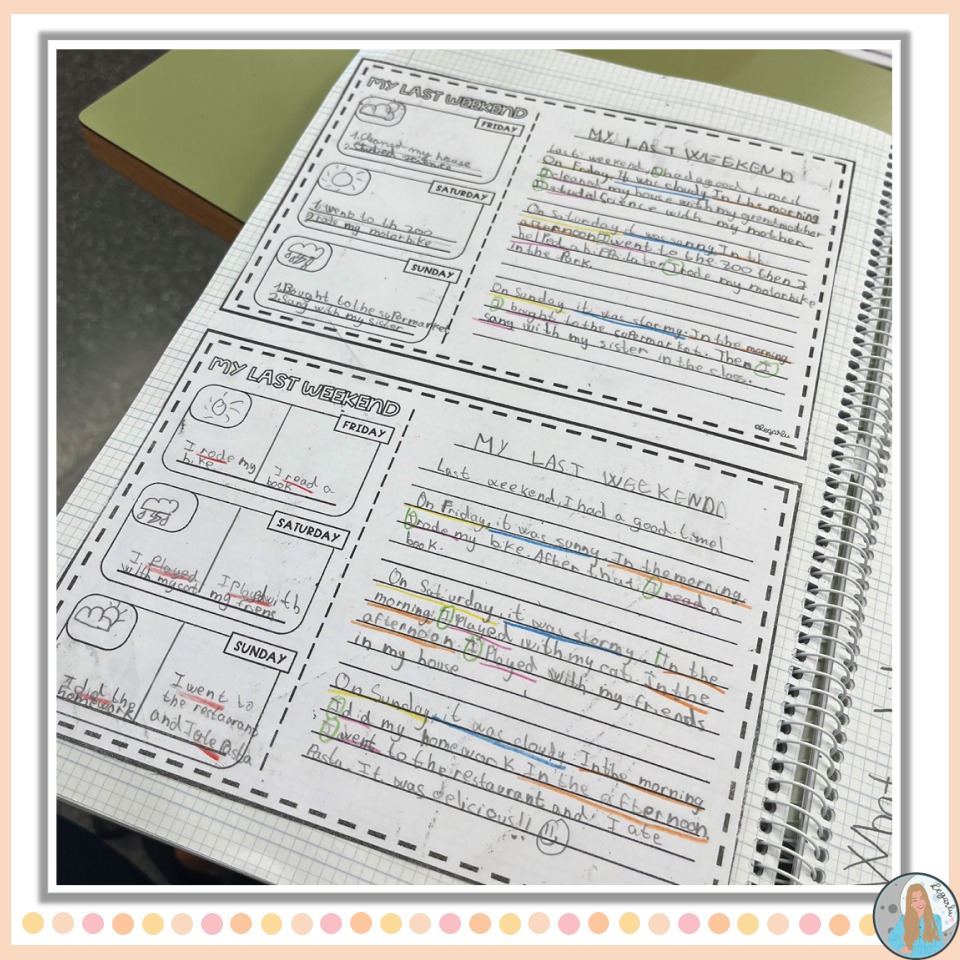 MY LAST WEEKEND
FRIDAY
1. my house
2. studied science
SATURDAY
1. went to th zoo
2. rode my motorbike
SUNDAY
1. Bought to the supermarket
2. Sang with my sister
MY LAST WEEKEND
Last weekend, I had a good time!
On Friday, it was cloudy. In the morning
I cleaned my house with my grand mother
I science with my mother.
On Saturday, it was sunny. In the
afternoon I went to the zoo then I
later I rode my motorbike
in the Park.
On Sunday, it was stormy. In the morning
I bought to the supermarket. Then I
sang with my sister in the class.
@Regarlu
MY LAST WEEKEND
FRIDAY
I rode my
bike
I read a
book
SATURDAY
I Played
with my cat
I played with
my friens
SUNDAY
I did the
homework
I went to
the restaurant
and I ate Pasta
MY LAST WEEKEND
Last weekend, I had a good time!
On Friday, it was sunny. In the morning
I rode my bike. After that I read a
book.
On Saturday, it was stormy. In the
morning I Played with my cat. In the
afternoon I Played with my friends
in my house
On Sunday, it was cloudy. In the morning
I did my homework In the afternoon
I went to the restaurant and I ate
Pasta. It was delicious!!
Regarlu